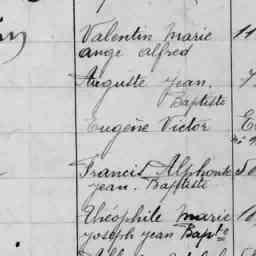 Valentin Marie
ange alfred
Auguste jean.
Baptiste
Eugène Victor
Francis Alphonse
jean. Baptiste
Théophile Marie
joseph jean Bapte